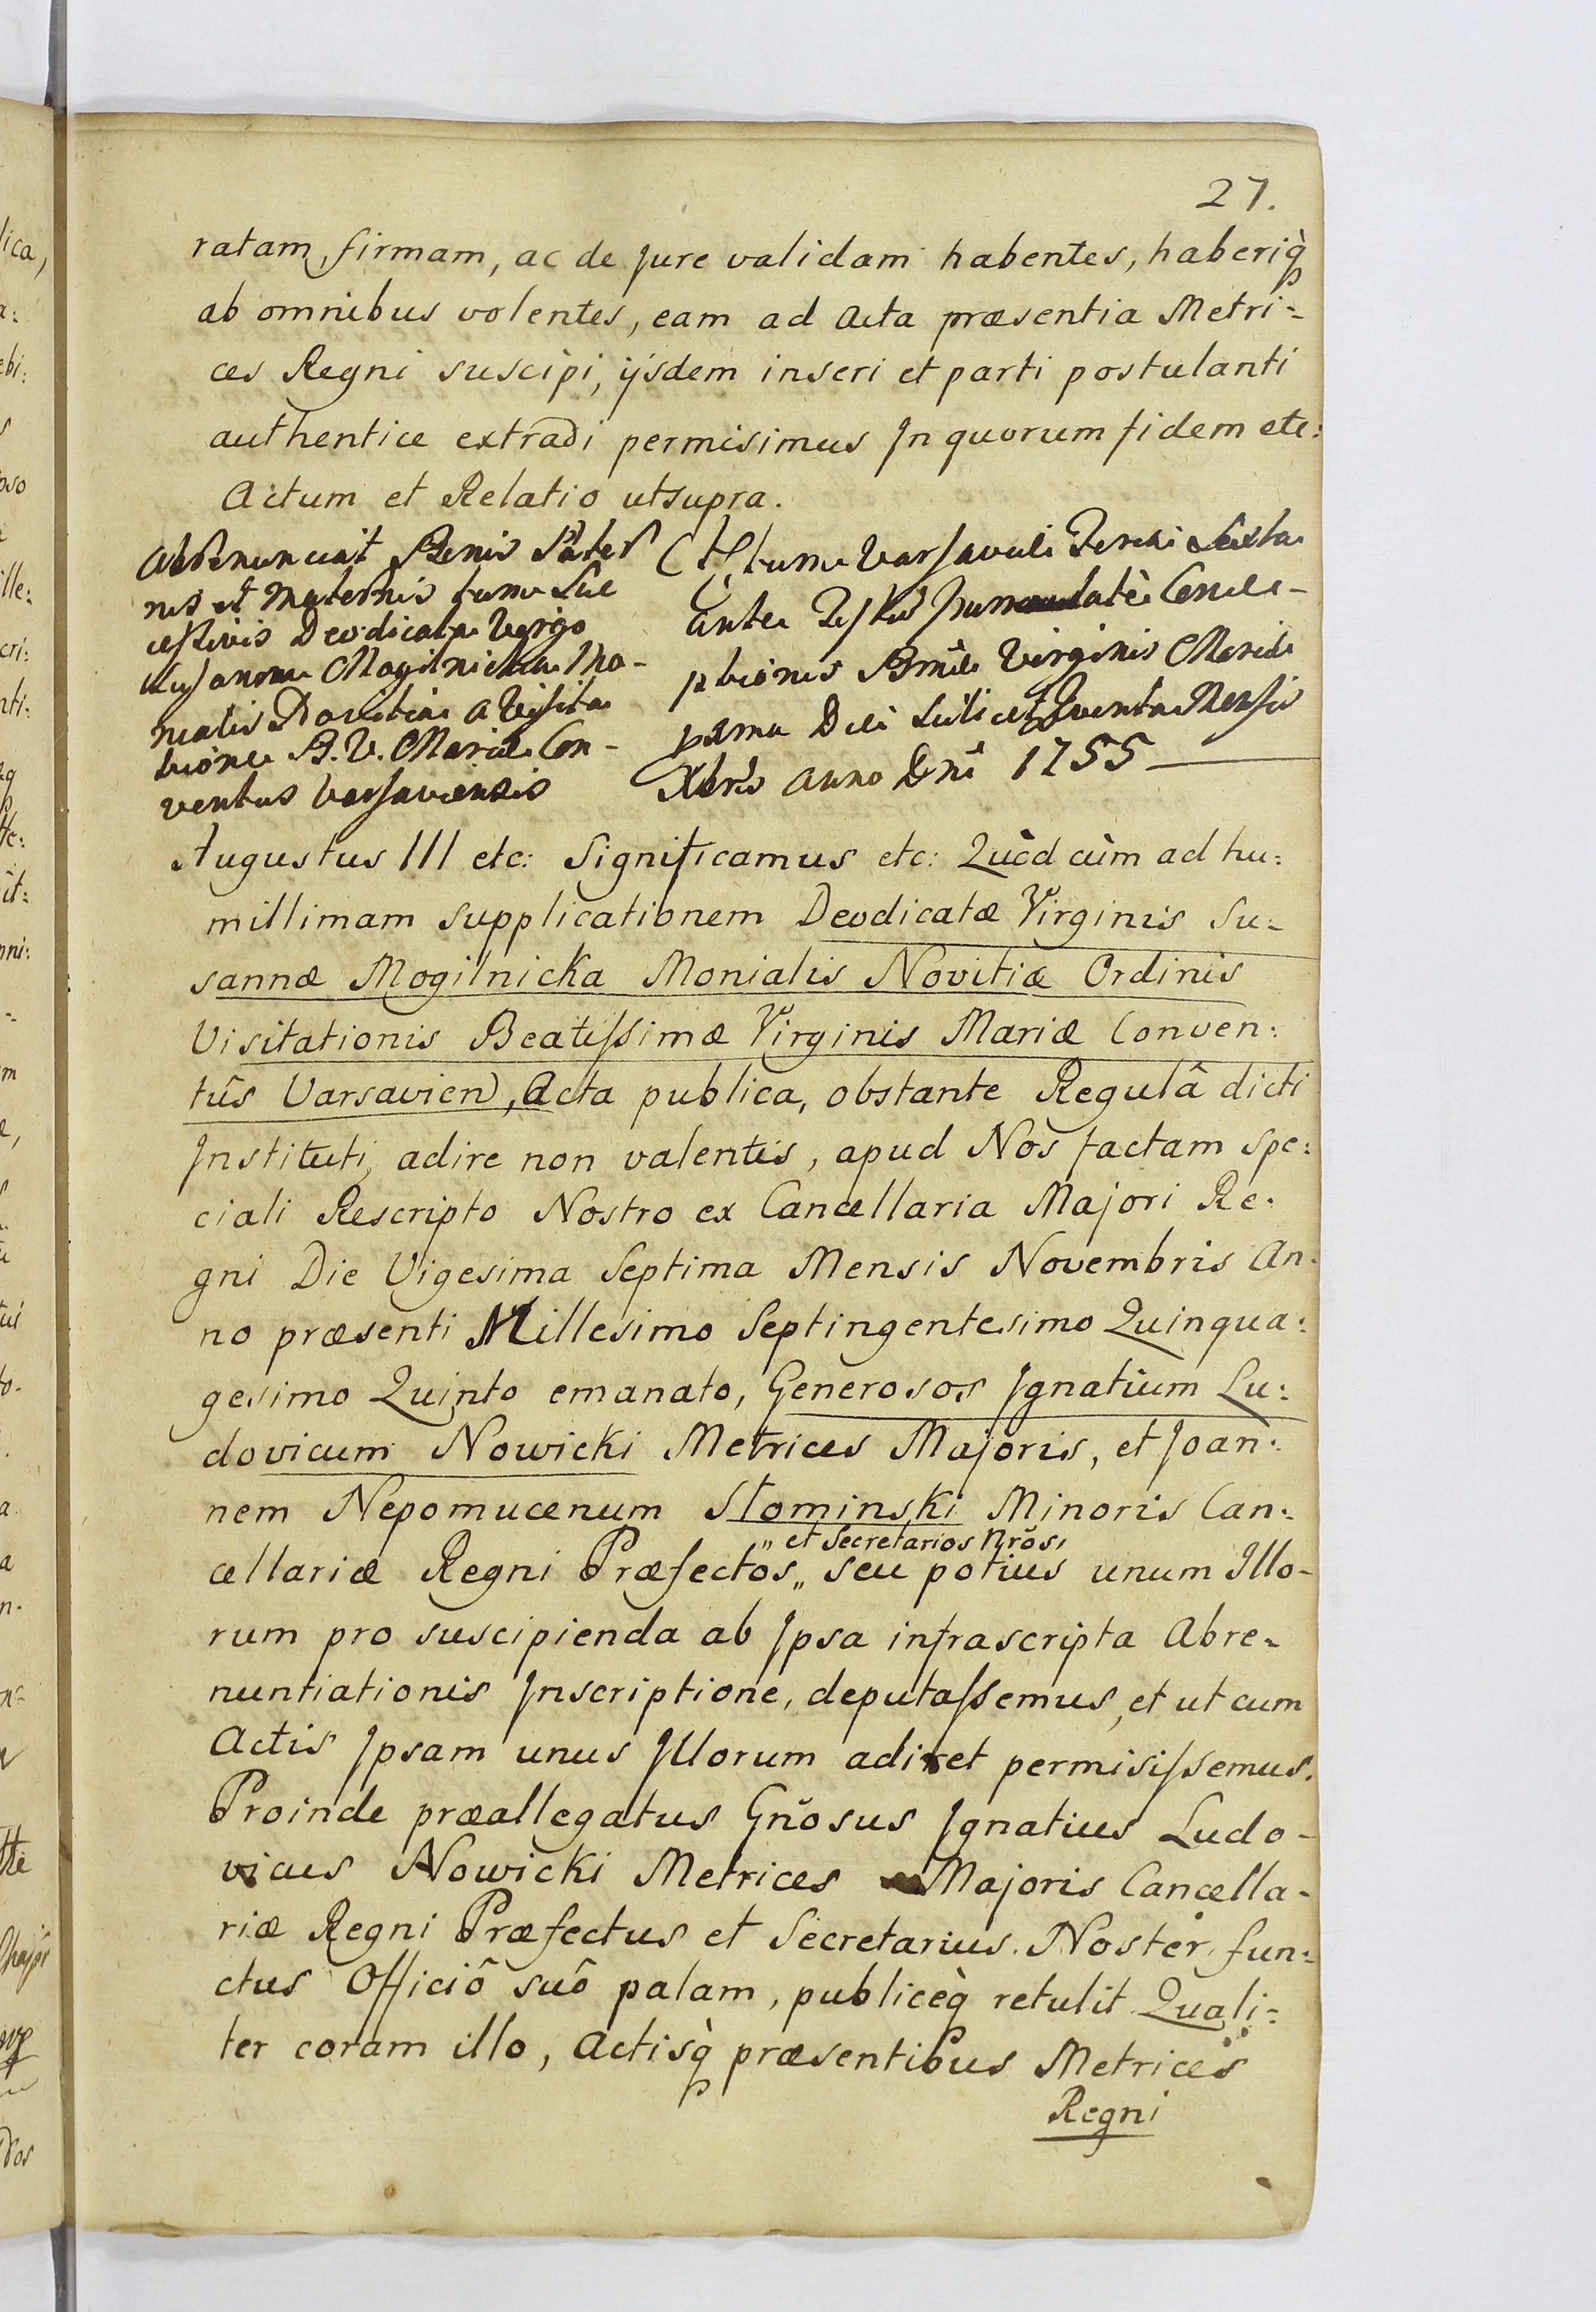 27.
ratam, firmam, ac de Jure validam habentes, haberiq̀
ab omnibus volentes, eam ad Acta præsentia Metri=
ces Regni suscipi, ijsdem inseri et parti postulanti
authentice extradi permisimus Jn quorum fidem etc:
Actum et Relatio utsupra.
Abrenunciat Bonis Pater
nis et Maternis tum Suc
cessivis Deodicata Virgo
Susanna Mogilnicka Mo-
nialis Novitia a Visita
tione B. V. Mariæ Con-
ventus Varsaviensis
Actum Varsaviæ Feria Sexta
ante Festum Immaculatæ Conce-
ptionis Bmæ Virginis Mariæ
prima Die Scilicet Quinta Mensis
Xbris Anno Dnî 1755
Augustus III etc: Significamus etc: Quòd cùm ad hu:
millimam supplicationem Deodicatæ Virginis Su=
sannæ Mogilnicka Monialis Novitiæ Ordinis
Visitationis Beatissimæ Virginis Mariæ Conven:
tûs Varsavien, Acta publica, obstante Regulâ dicti
Jnstituti, adire non valentis, apud Nos factam spe:
ciali Rescripto Nostro ex Cancellaria Majori Re:
gni Die Vigesima Septima Mensis Novembris An:
no præsenti Millesimo Septingentesimo Quinqua:
gesimo Quinto emanato, Generosos Jgnatium Lu:
dovicum Nowicki Metrices Majoris, et Joan:
nem Nepomucenum Słominski Minoris Can:
„ et Secretarios Nrõs,
cellariæ Regni Præfectos „ seu potius unum Jllo-
rum pro suscipienda ab Jpsa infrascripta Abre=
nuntiationis Jnscriptione, deputassemus, et ut cum
Actis Jpsam unus Jllorum adiret permisissemus.
Proinde præallegatus Gñosus Jgnatius Ludo-
vicus Nowicki Metrices Majoris Cancella-
riæ Regni Præfectus et Secretarius Noster, fun:
ctus Officiô suô palam, publiceq̀ retulit Quali=
ter coram illo, Actisq̀ præsentibus Metrices
Regni